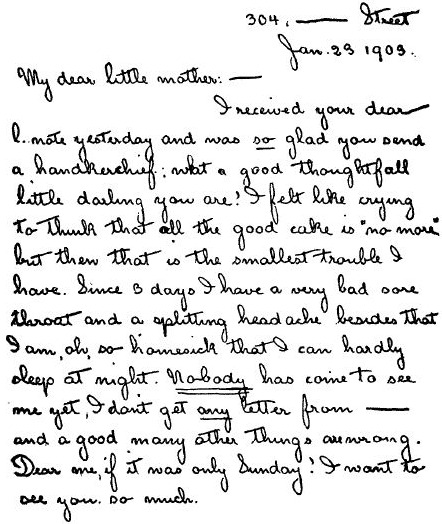 304, —— Street
Jan. 23 1903.
My dear little mother: —
I received your dear
l. note yesterday and was so glad you send
a handkerchief; what a good thoughtfall
little darling you are! I felt like crying
to think that all the good cake is "no more"
but then that is the smallest trouble I
have. Since 3 days I have a very bad sore
throat and a splitting headache besides that
I am, oh, so homesick that I can hardly
sleep at night. Nobody has come to see
me yet, I don't get any letter from ——
and a good many other things are wrong.
Dear me, if it was only Sunday! I want to
see you so much.